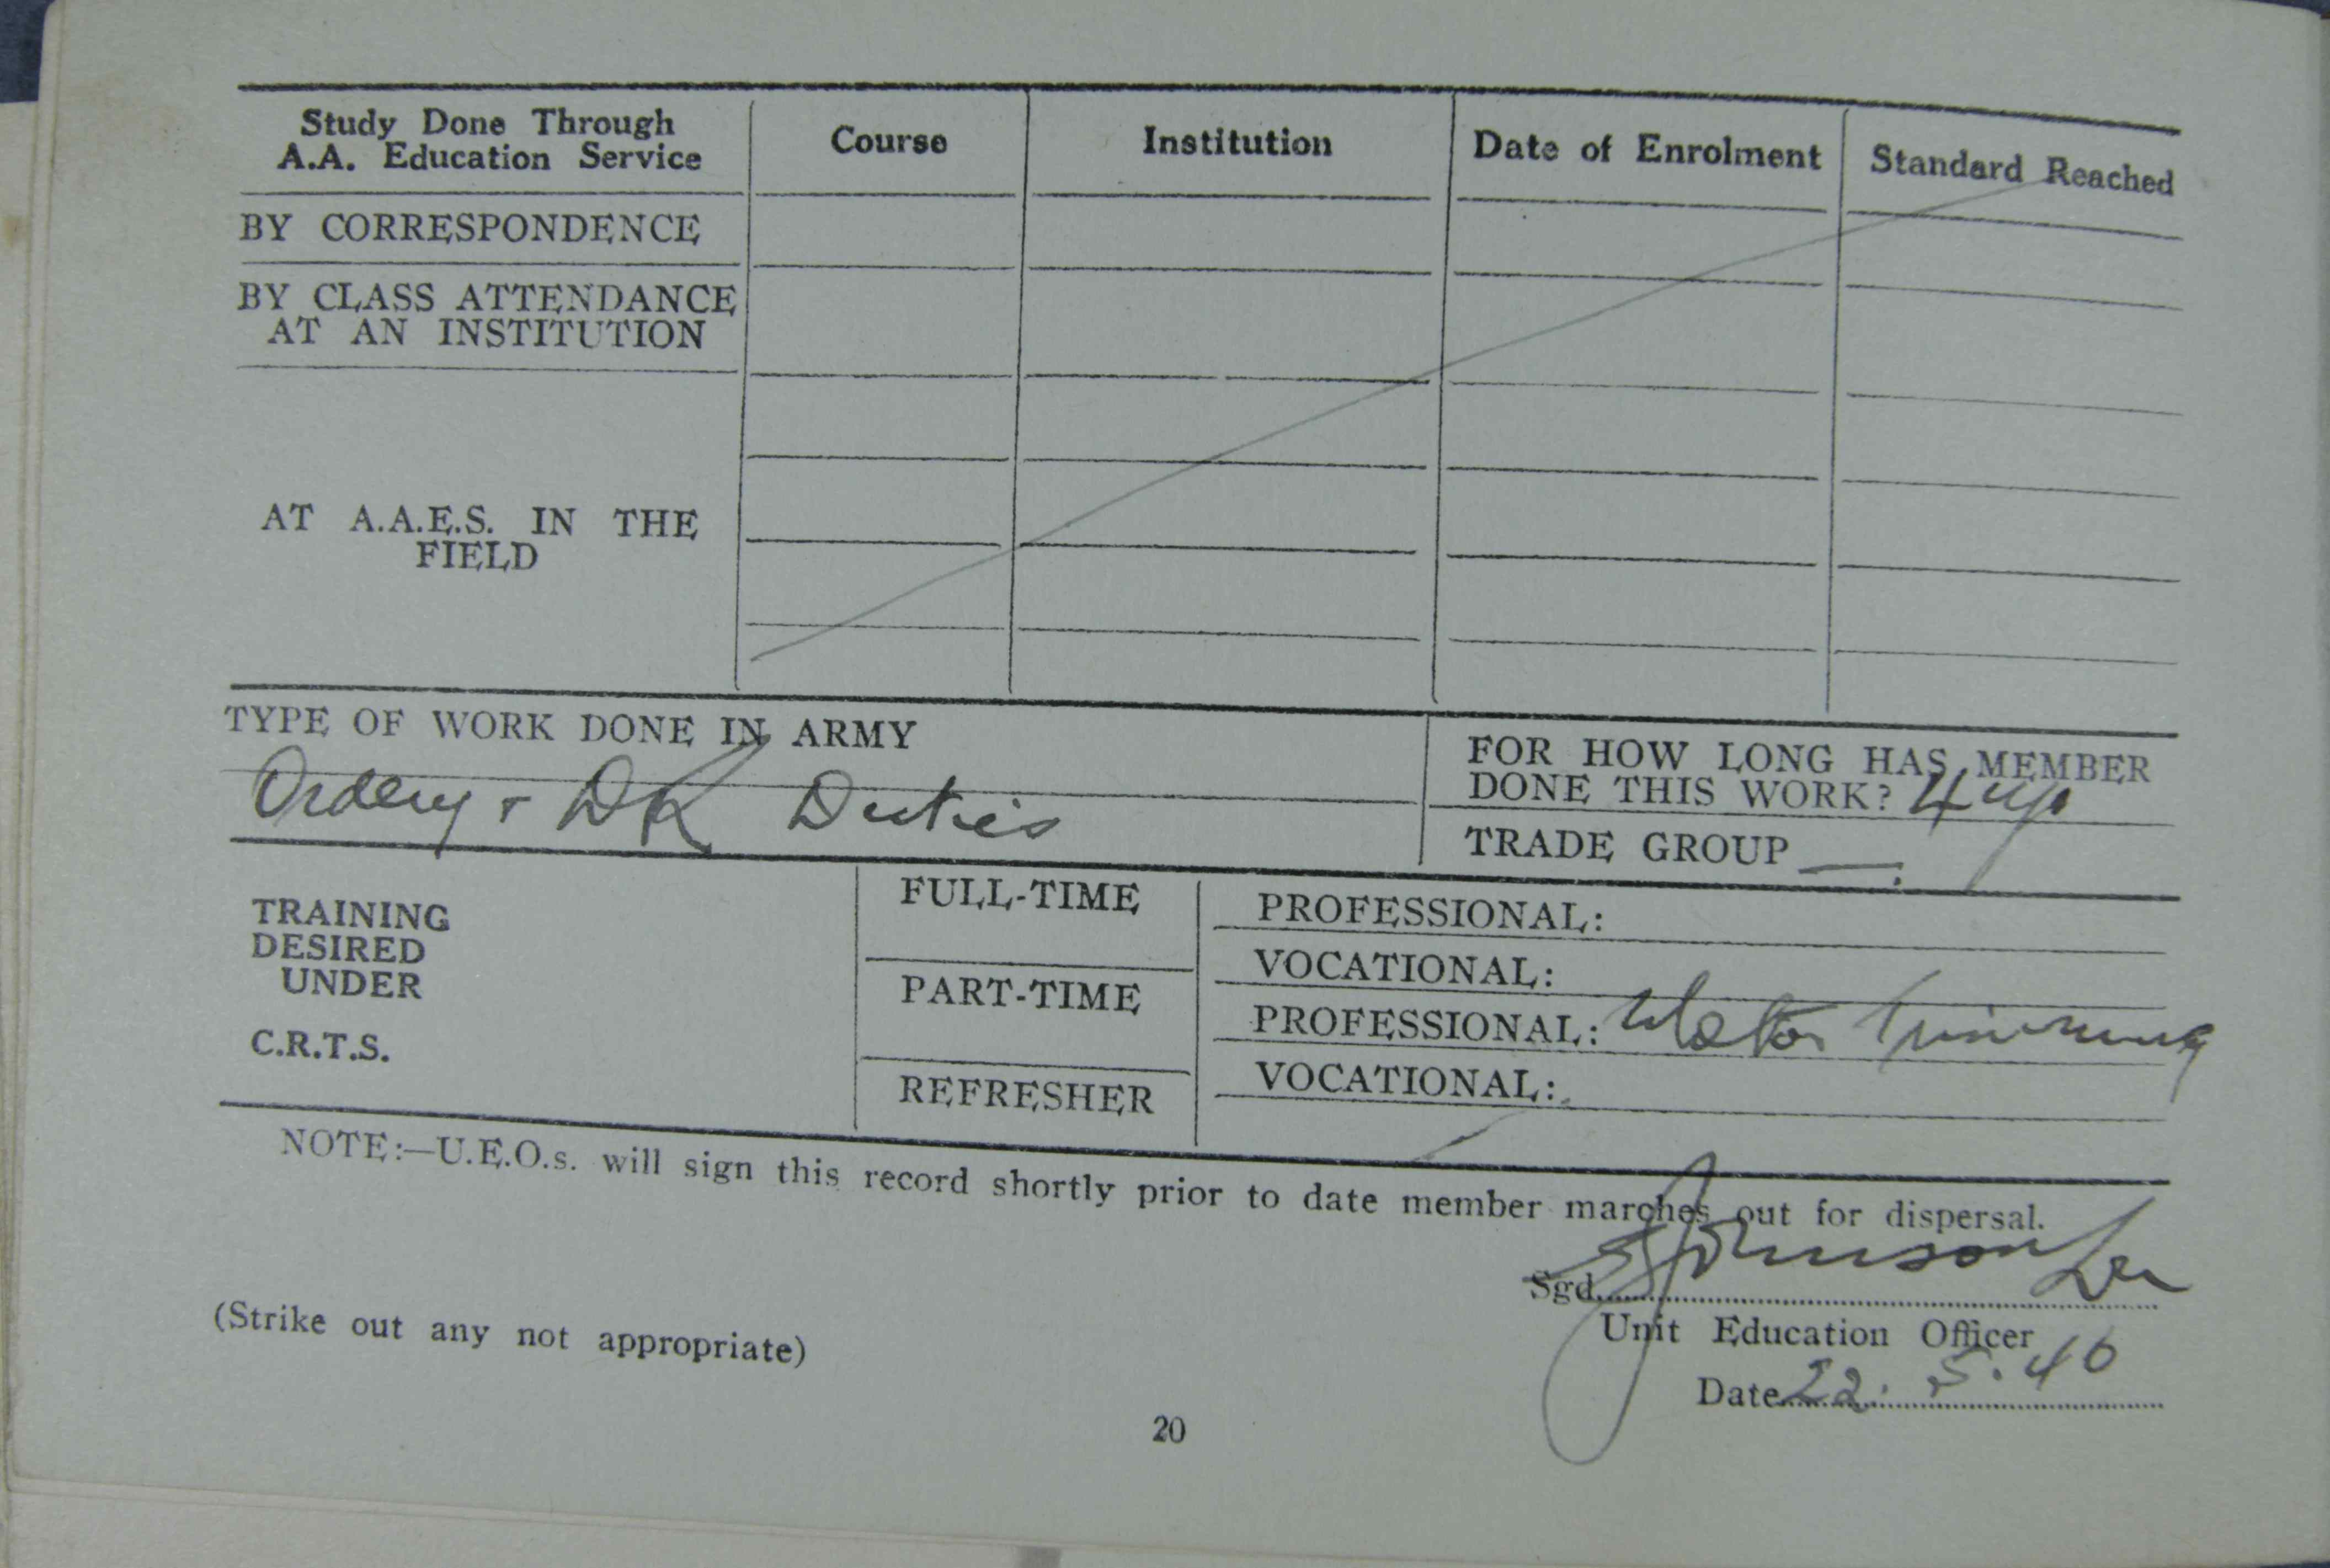 Study Done Through
A.A. Education Service
Course
Institution
Date of Enrolment
Standard Reached
BY CORRESPONDENCE
BY CLASS ATTENDANCE
AT AN INSTITUTION
AT A.A.E.S. IN THE
FIELD
TYPE OF WORK DONE IN ARMY
Orderly & DR Duties
FOR HOW LONG HAS MEMBER
DONE THIS WORK? 4
TRADE GROUP —
TRAINING
DESIRED
UNDER
C.R.T.S.
FULL-TIME
PART-TIME
REFRESHER
PROFESSIONAL:
VOCATIONAL:
PROFESSIONAL: Motor Trimming
VOCATIONAL:
NOTE:—U.E.O.s. will sign this record shortly prior to date member marches out for dispersal.
Sgd. Johnson
Unit Education Officer
(Strike out any not appropriate)
Date 22. 5. 46
20